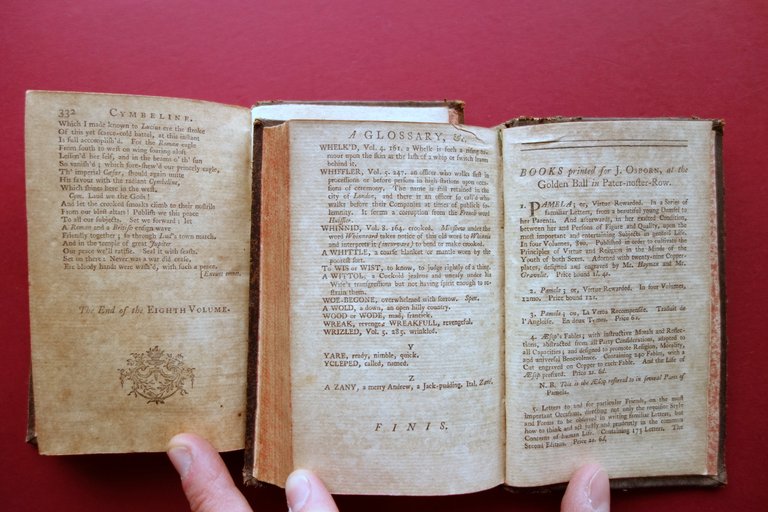 332 CYMBELINE.
Which I made known to Lucius ere the stroke
Of this yet scarce-cold battel, at this instant
Is full accomplish'd. For the Roman eagle
From south to west on wing soaring aloft
Lessen'd her self, and in the beams o' th' sun
So vanish'd; which fore-shew'd our princely eagle,
Th' imperial Cæsar, should again unite
His favour with the radiant Cymbeline,
Which shines here in the west.
Cym. Laud we the Gods!
And let the crooked smoaks climb to their nostrils
From our blest altars! Publish we this peace
To all our subjects. Set we forward: let
A Roman and a British ensign wave
Friendly together; so through Lud's town march,
And in the temple of great Jupiter
Our peace we'll ratifie. Seal it with feasts.
Set on there: Never was a war did cease,
Ere bloody hands were wash'd, with such a peace.
[Exeunt omnes.
The End of the EIGHTH VOLUME.
A GLOSSARY, &c.
WHELK'D, Vol. 4. 161. a Whelk is such a rising tu-
mour upon the skin as the lash of a whip or switch leaves
behind it.
WHIFFLER, Vol. 5. 247. an officer who walks first in
processions or before persons in high stations upon occa-
sions of ceremony. The name is still retained in the
city of London, and there is an officer so call'd who
walks before their Companies at times of publick so-
lemnity. It seems a corruption from the French word
Huissier.
WHINNID, Vol. 8. 164. crooked. Minshew under the
word Whinneard takes notice of this old word to Whinnie
and interprets it (incurvare) to bend or make crooked.
A WHITTLE, a coarse blanket or mantle worn by the
poorest sort.
To WIS or WIST, to know, to judge rightly of a thing.
A WITTOL, a Cuckold jealous and uneasy under his
Wife's transgressions but not having spirit enough to re-
strain them.
WOE-BEGONE, overwhelmed with sorrow. Spen.
A WOLD, a down, an open hilly country.
WOOD or WODE, mad, frantick.
WREAK, revenge. WREAKFULL, revengeful.
WRIZLED, Vol. 5. 285. wrinkled.
Y
YARE, ready, nimble, quick.
YCLEPED, called, named.
Z
A ZANY, a merry Andrew, a Jack-pudding. Ital. Zani.
FINIS.
BOOKS printed for J. OSBORN, at the
Golden Ball in Pater-noster-Row.
1. PAMELA; or, Virtue Rewarded. In a Series of
familiar Letters, from a beautiful young Damsel to
her Parents. And afterwards, in her exalted Condition,
between her and Persons of Figure and Quality, upon the
most important and entertaining Subjects in genteel Life.
In four Volumes, 8vo. Published in order to cultivate the
Principles of Virtue and Religion in the Minds of the
Youth of both Sexes. Adorned with twenty-nine Copper-
plates, designed and engraved by Mr. Hayman and Mr.
Gravelot. Price bound
2. Pamela; or, Virtue Rewarded. In four Volumes,
12mo. Price bound 12s.
3. Pamela; ou, La Vertu Recompensée. Traduit de
l'Anglois. En deux Tomes. Price 6s.
4. Æsop's Fables; with instructive Morals and Reflec-
tions, abstracted from all Party Considerations, adapted to
all Capacities; and designed to promote Religion, Morality,
and universal Benevolence. Containing 240 Fables, with a
Cut engraved on Copper to each Fable. And the Life of
Æsop prefixed. Price 2s. 6d.
N. B. This is the Æsop referred to in several Parts of
Pamela.
5. Letters to and for particular Friends, on the most
important Occasions, directing not only the requisite Style
and Forms to be observed in writing familiar Letters, but
how to think and act justly and prudently in the common
Concerns of human Life. Containing 173 Letters. The
Second Edition. Price 2s. 6d.